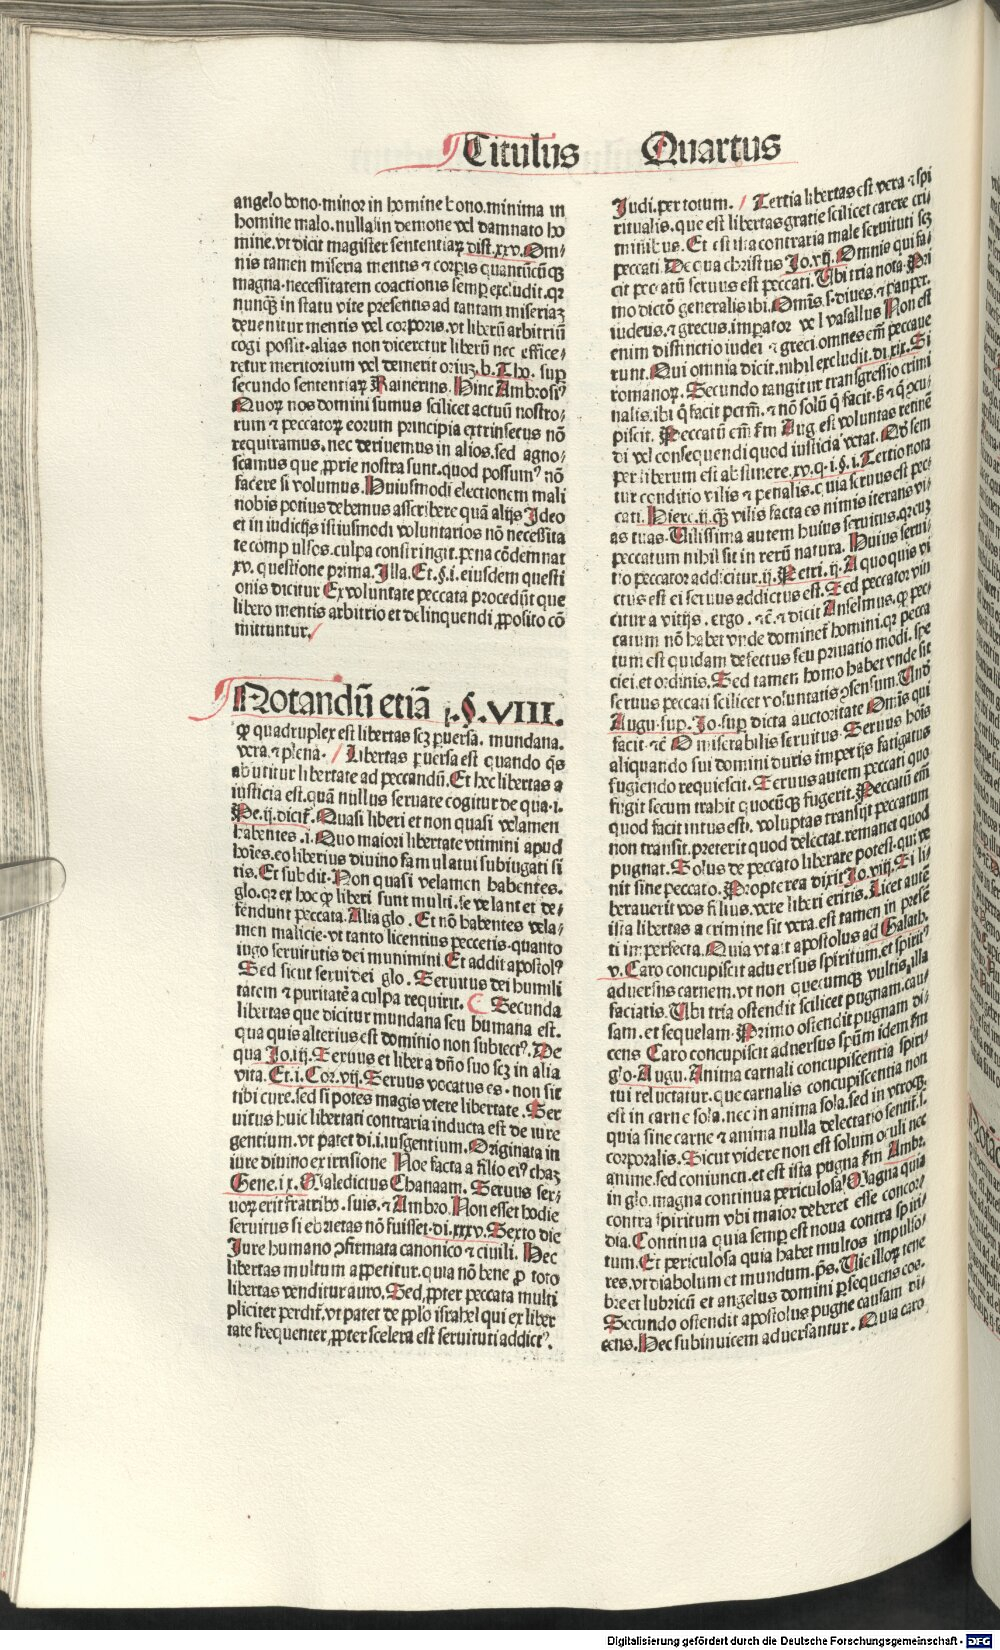 Titulus Quartus
angelo bono. minor in homine bono. minima in
homine malo. nulla in demone vel damnato ho
mine. vt dicit magister sententiaꝝ dist. xxv. Om⸗
nis tamen miseria mentis ⁊ corꝑis quantūcūqꝫ
magna. necessitatem coactionis semꝑ excludit. qꝛ
nunqꝫ in statu vite presentis ad tantam miseriaꝫ
deuenitur mentis vel corporis. vt liberū arbitriū
cogi possit. alias non diceretur liberū nec effice⸗
retur meritorium vel demeritoriuꝫ. b. Tho. suꝑ
secundo sententiaꝝ Rainerius. Hinc Ambrosiꝰ
Quoꝝ nos domini sumus scilicet actuū nostro⸗
rum ⁊ peccatoꝝ eorum principia extrinsecus nō
requiramus, nec deriuemus in alios. sed agno⸗
scamus que ꝓprie nostra sunt. quod possumꝰ nō
facere si volumus. Huiusmodi electionem mali
nobis potius debemus asscribere quā alijs Ideo
et in iudicijs istiusmodi voluntarios nō necessita
te compulsos. culpa constringit. pena cōdemnat
xv. questione prima. Illa. Et. §. i. eiusdem questi
onis dicitur Ex voluntate peccata procedūt que
libero mentis arbitrio et delinquendi ꝓposito cō
mittuntur.
Notandū etiā j. §. VIII.
ꝙ quadruplex est libertas scꝫ ꝑuersa. mundana.
vera. ⁊ plena. Libertas ꝑuersa est quando qͥs
abutitur libertate ad peccandū. Et hec libertas a
iusticia est. quā nullus seruare cogitur de qua. i.
Pe. ij. dicit̄. Quasi liberi et non quasi velamen
habentes. i. Quo maiori libertate vtimini apud
hoīes. eo liberius diuino famulatui subiugati si
tis. Et subdit. Non quasi velamen habentes.
glo. qꝛ ex hoc ꝙ liberi sunt multi. se velant et de⸗
fendunt peccata. Alia glo. Et nō habentes vela⸗
men malicie. vt tanto licentius peccetis. quanto
iugo seruitutis dei munimini. Et addit apostolꝰ
Sed sicut serui dei glo. Seruitus dei humili
tatem ⁊ puritatē a culpa requirit. Secunda
libertas que dicitur mundana seu humana est.
qua quis alterius est dominio non subiectꝰ. De
qua Jo. iij. Seruus et liber a dn̄o suo scꝫ in alia
vita. Et. i. Cor. vij. Seruus vocatus es. non sit
tibi cure. sed si potes magis vtere libertate. Ser
uitus huic libertati contraria inducta est de iure
gentium. vt patet di. i. iusgentium. Originata in
iure diuino ex irrisione Noe facta a filio eiꝰ chaꝫ
Gene. ix. Maledictus Chanaam. Seruus ser⸗
uoꝝ erit fratribꝰ. suis. ⁊ Ambro. Non esset hodie
seruitus si ebrietas nō fuisset. di. xxxv. Sexto die
Jure humano ꝯfirmata canonico ⁊ ciuili. Hec
libertas multum appetitur. quia nō bene ꝓ toto
libertas venditur auro. Sed ꝓpter peccata multi
pliciter perdit̄. vt patet de pp̄lo israhel qui ex liber
tate frequenter ꝓpter scelera est seruituti addictꝰ.
Judi. per totum. Tertia libertas est vera ⁊ spi
ritualis. que est libertas gratie scilicet carere cri⸗
minibus. Et est ista contraria male seruituti scꝫ
peccati. De qua christus Jo. viij. Omnis qui fa⸗
cit peccatū seruus est peccati. Ubi tria nota. Pri
mo dictō generalis ibi. Omīs. s. diues. ⁊ pauper.
iudeus. ⁊ grecus. imperator vel vasallus Non est
enim distinctio iudei ⁊ greci. omnes em̄ peccaue
runt. Qui omnia dicit. nihil excludit. di. xix. Si
romanoꝝ. Secundo tangitur transgressio crimi
nalis. ibi q̄ facit
piscit. Peccatū em̄ ẜm Aug est voluntas retinē
di vel consequendi quod iusticia vetat.
per liberum est abstinere. xv. q. i. §. i. Tertio nota
tur conditio vilis ⁊ penalis. quia seruus est pec⸗
cati. Hiere. ij. qꝫ vilis facta es nimis iterans vi⸗
as tuas. Uilissima autem huius seruitus. qꝛ cuꝫ
peccatum nihil sit in rerū natura. Huius serui⸗
tio peccator addicitur. ij. Petri. ij. A quo quis vi
ctus est ei seruus addictus est. Sed peccator vin
citur a vitijs. ergo. ⁊c̄. ⁊ dicit Anselmus. ꝙ pec⸗
catum nō habet vnde dominet̄ homini. qꝛ pecca
tum est quidam defectus seu priuatio modi. spe
ciei. et ordinis. Sed tamen homo habet vnde sit
seruus peccati scilicet voluntatis ꝯsensum. Und̄
Augu. suꝑ. Jo. suꝑ dicta auctoritate Omīs qui
facit. ⁊c̄ O miserabilis seruitus. Seruus hoīs
aliquando sui domini duris imperijs fatigatus
fugiendo requiescit. Seruus autem peccati quo
fugit secum trahit quocūqꝫ fugerit. Peccatū em̄
quod facit intus est. voluptas transijt peccatum
non transit. preterit quod delectat. remanet quod
pugnat. Solus de peccato liberare potest. qui ve
nit sine peccato. Propterea dixit Jo. viij. Si li⸗
berauerit vos filius. vere liberi eritis. Licet autē
ista libertas a crimine sit vera. est tamen in presē
ti imperfecta. Quia vt ait apostolus ad Galath.
v. Caro concupiscit aduersus spiritum. et spiritꝰ
aduersus carnem. vt non quecumqꝫ vultis. illa
faciatis. Ubi tria ostendit scilicet pugnam. cau⸗
sam. et sequelam. Primo ostendit pugnam di⸗
cens Caro concupiscit aduersus spm̄ idem ẜm
glo. Augu. Anima carnali concupiscentia spiri⸗
tui reluctatur. que carnalis concupiscentia non
est in carne sola. nec in anima sola. sed in vtroqꝫ.
quia sine carne ⁊ anima nulla delectatio sentit̄. s.
corporalis. Sicut videre non est solum oculi nec
anime. sed coniuncti. et est ista pugna ẜm Ambr.
in glo. magna continua periculosa. Magna quia
contra spiritum vbi maior deberet esse concor⸗
dia. Continua quia semꝑ est noua contra spiri⸗
tum. Et periculosa quia habet multos impulso⸗
res. vt diabolum et mundum. ps. Uie illoꝝ tene
bre et lubricū et angelus domini ꝑsequens eos.
Secundo ostendit apostolus pugne causam di⸗
cens. Hec subinuicem aduersantur. Quia caro
Digitalisierung gefördert durch die Deutsche Forschungsgemeinschaft - DFG